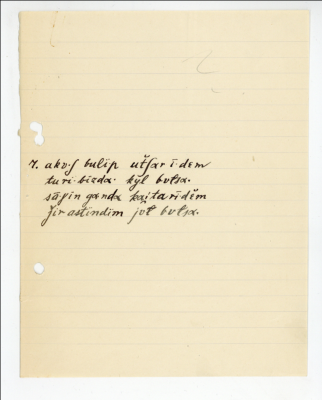 7. akoʃ bulip utšar idem
turi bizda. kyl butsa.
sōʒin ganda kaitaridĕm
žir astindim jol butsa.